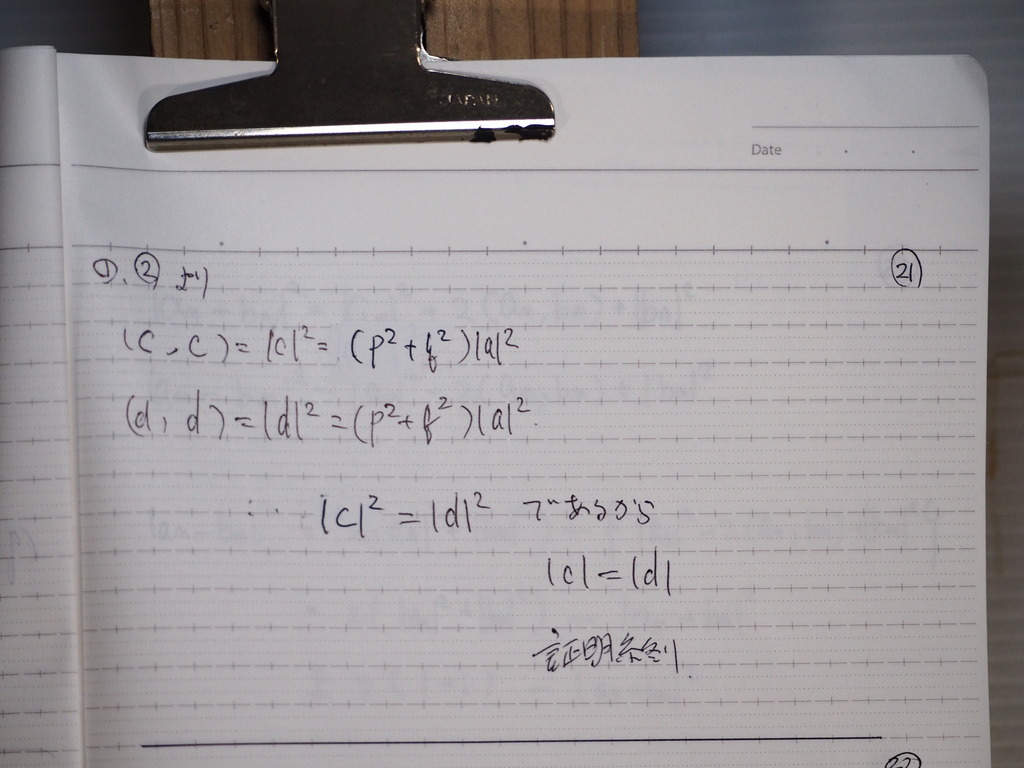 JAPAN
Date
①, ② より
㉑
(c, c) = |c|² = (p²+q²)|a|²
(d, d) = |d|² = (p²+q²)|a|².
∴ |c|² = |d|² であるから
|c| = |d|
証明終り.